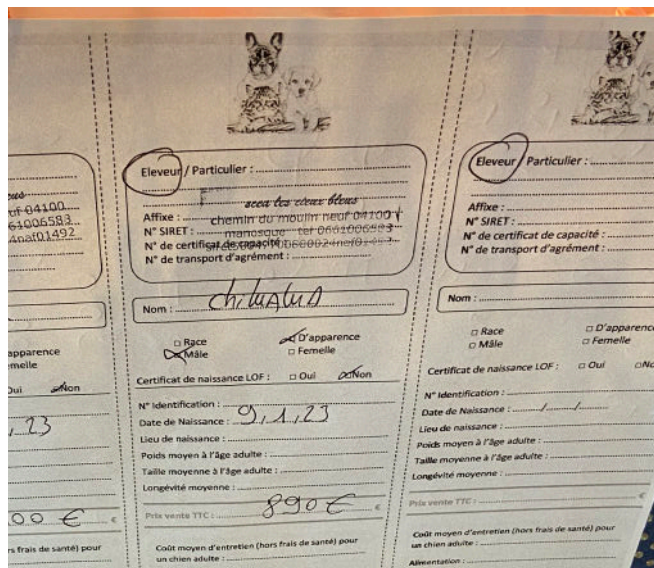 Eleveur / Particulier :
scea les cieux bleus
Affixe :
chemin du moulin neuf 04100
N° SIRET :
manosque tel 0661006583
N° de certificat de capacité :
N° de transport d'agrément :
Nom : chihuahua
□ Race
D'apparence
Mâle
□ Femelle
Certificat de naissance LOF : □ Oui Non
N° Identification :
Date de Naissance : 9,1,23
Lieu de naissance :
Poids moyen à l'âge adulte :
Taille moyenne à l'âge adulte :
Longévité moyenne :
Prix vente TTC : 890 € €
Coût moyen d'entretien (hors frais de santé) pour
un chien adulte :
Eleveur / Particulier :
Affixe :
N° SIRET :
N° de certificat de capacité :
N° de transport d'agrément :
Nom :
□ Race
□ D'apparence
□ Mâle
□ Femelle
Certificat de naissance LOF : □ Oui
N° Identification :
Date de Naissance : / /
Lieu de naissance :
Poids moyen à l'âge adulte :
Taille moyenne à l'âge adulte :
Longévité moyenne :
Prix vente TTC : €
Coût moyen d'entretien (hors frais de santé) pour
un chien adulte :
Alimentation :